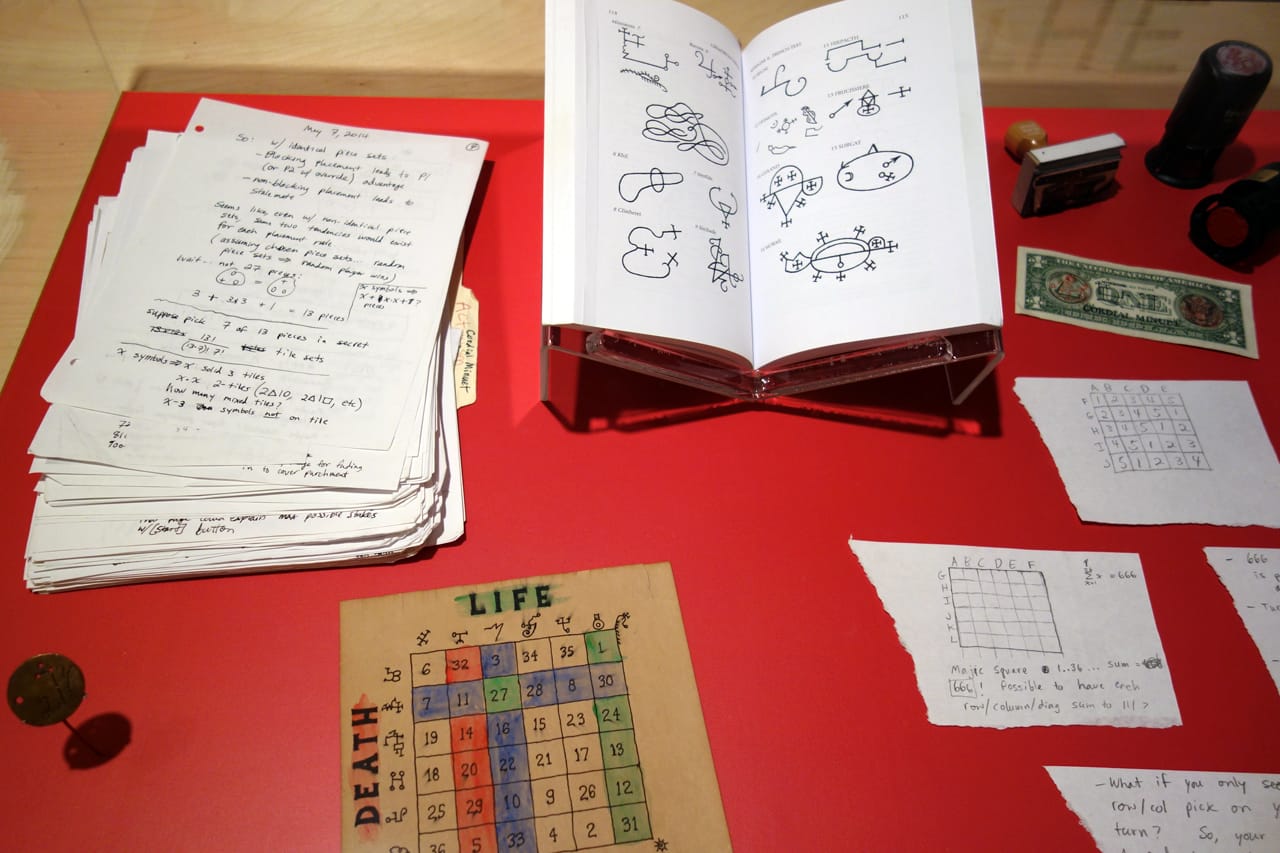 May 7, 2014
So: w/ identical piece sets
- Blocking placement leads to P1
(or P2 w/ override) advantage
- non-blocking placement leads to
stalemate
Seems like even w/ non-identical piece
sets, same two tendencies would exist
for each placement rule...
(assuming chosen piece sets... random
piece sets ⇒ random player wins)
Wait-- not 27 pieces:
3 + 3x3 + 1 = 13 pieces
x symbols ⇒
pieces
suppose pick 7 of 13 pieces in secret
13!
(13-7)! 7!
tile sets
x symbols ⇒ x solid 3 tiles
x·x 2-tiles (2△1O, 2△1□, etc)
How many mixed tiles?
x-3 symbols not on tile
for fading
in to cover parchment
explain max possible stakes
w/[start] button
Cordial Minuet
118
6 Khil
8 Clisthert
115
13 FRUCISSIERE
15 SURGAT
THE UNITED STATES OF AMERICA
ONE
CORDIAL MINUET
A B C D E
F 1 2 3 4 5
G 2 3 4 5 1
H 3 4 5 1 2
I 4 5 1 2 3
J 5 1 2 3 4
A B C D E F
G
H
I
J
K
L
Σ x = 666
Magic Square 1..36 ... sum =
666! Possible to have each
row/column/diag sum to 111?
- 666
is
- What if you only see
row/col pick on
turn? So, your
LIFE
DEATH
6 32 3 34 35 1
7 11 27 28 8 30
19 14 16 15 23 24
18 20 22 21 17 13
25 29 10 9 26 12
36 5 33 4 2 31